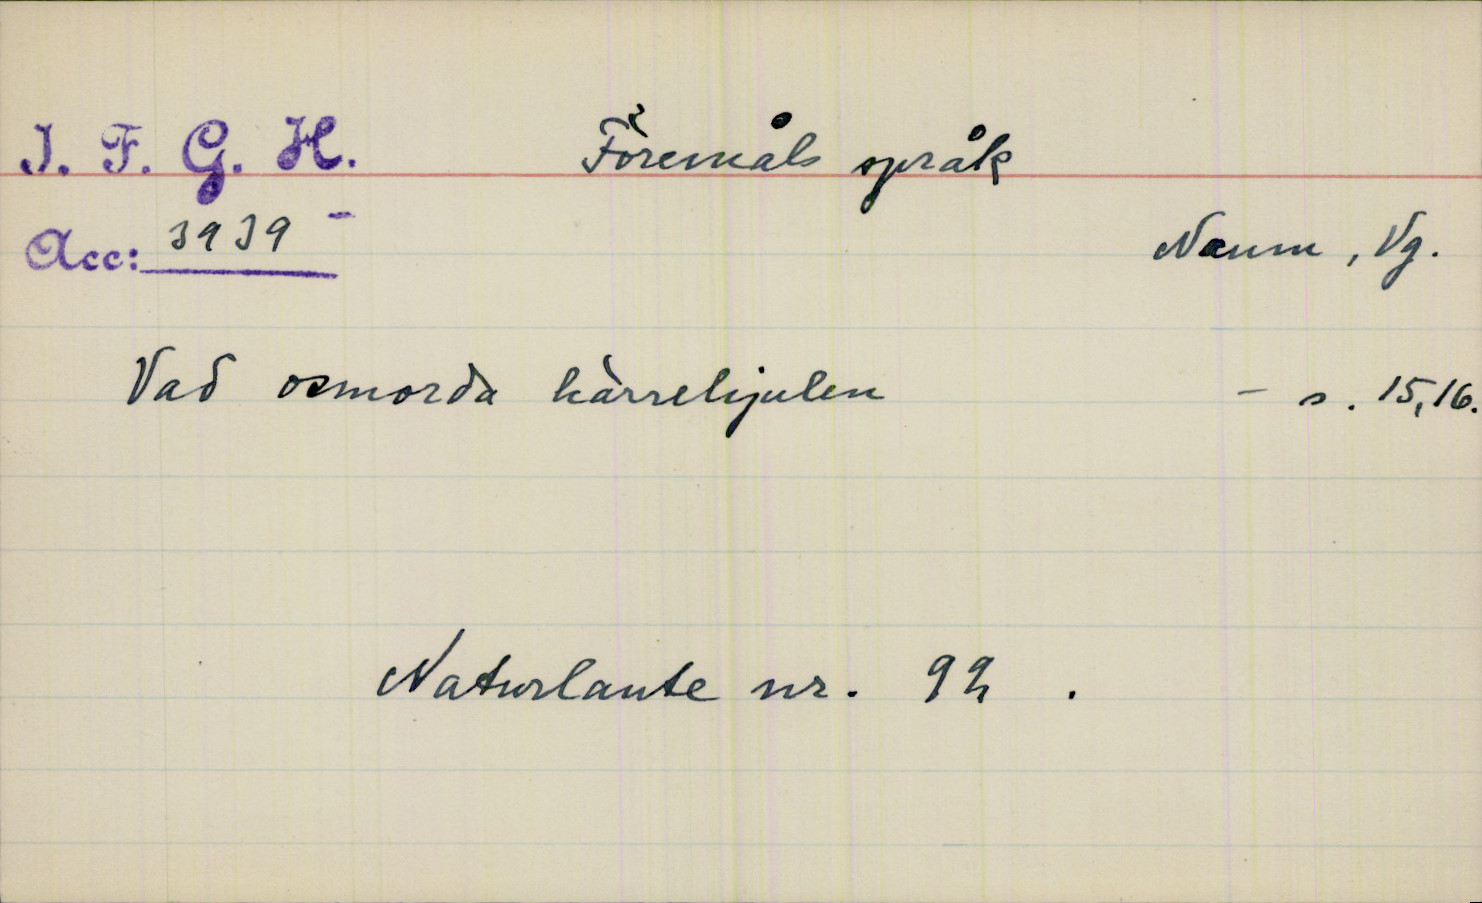 I. F. G. H.
Föremåls språk
Acc: 3939 -
Naum, Vg.
Vad osmorda kärrehjulen - s. 15, 16.
Naturlaute nr. 92.